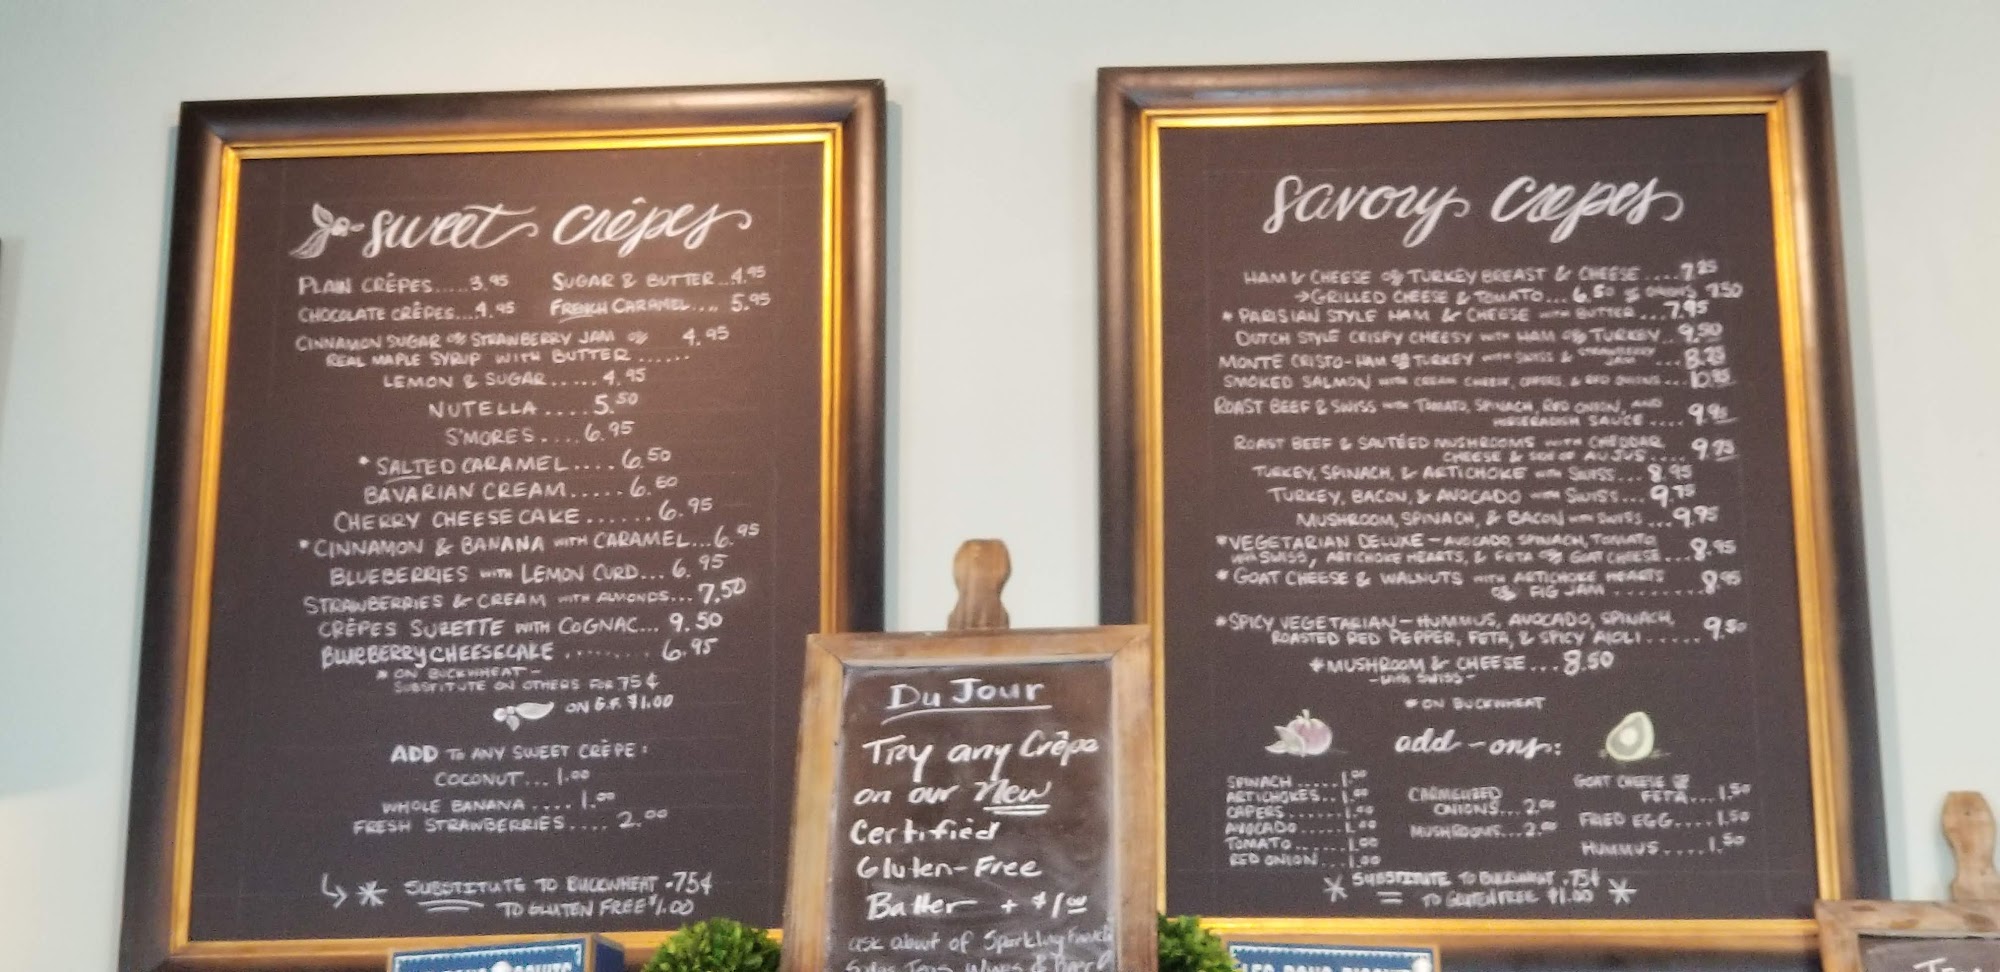 sweet crêpes
PLAIN CRÊPES.....3.95 SUGAR & BUTTER...4.95
CHOCOLATE CRÊPES....4.95 FRENCH CARAMEL.... 5.95
CINNAMON SUGAR or STRAWBERRY JAM or 4.95
REAL MAPLE SYRUP WITH BUTTER ......
LEMON & SUGAR.....4.95
NUTELLA....5.50
S'MORES....6.95
* SALTED CARAMEL....6.50
BAVARIAN CREAM.....6.50
CHERRY CHEESECAKE......6.95
* CINNAMON & BANANA WITH CARAMEL...6.95
BLUEBERRIES WITH LEMON CURD...6.95
STRAWBERRIES & CREAM WITH ALMONDS...7.50
CRÊPES SUZETTE WITH COGNAC...9.50
BLUEBERRY CHEESECAKE .........6.95
* ON BUCKWHEAT -
SUBSTITUTE ON OTHERS FOR 75¢
ON G.F. $1.00
ADD TO ANY SWEET CRÊPE:
COCONUT...1.00
WHOLE BANANA ....1.00
FRESH STRAWBERRIES....2.00
* SUBSTITUTE TO BUCKWHEAT .75¢
TO GLUTEN FREE $1.00
Du Jour
Try any Crêpe
on our New
Certified
Gluten-Free
Batter + $1.00
ask about of Sparkling
savory crepes
HAM & CHEESE or TURKEY BREAST & CHEESE ....7.25
→GRILLED CHEESE & TOMATO...6.50 7.50
* PARISIAN STYLE HAM & CHEESE WITH BUTTER...7.95
DUTCH STYLE CRISPY CHEESY WITH HAM or TURKEY..9.50
MONTE CRISTO-HAM or TURKEY WITH SWISS & STRAWBERRY JAM...8.25
SMOKED SALMON WITH CREAM CHEESE, CAPERS, & RED ONIONS...10.95
ROAST BEEF & SWISS WITH TOMATO, SPINACH, RED ONION, AND
HORSERADISH SAUCE ....9.95
ROAST BEEF & SAUTÉED MUSHROOMS WITH CHEDDAR
CHEESE & SIDE OF AU JUS....9.75
TURKEY, SPINACH, & ARTICHOKE WITH SWISS...8.95
TURKEY, BACON, & AVOCADO WITH SWISS...9.75
MUSHROOM, SPINACH, & BACON WITH SWISS...9.95
*VEGETARIAN DELUXE - AVOCADO, SPINACH, TOMATO
WITH SWISS, ARTICHOKE HEARTS, & FETA or GOAT CHEESE...8.95
* GOAT CHEESE & WALNUTS WITH ARTICHOKE HEARTS
or FIG JAM ........8.95
*SPICY VEGETARIAN - HUMMUS, AVOCADO, SPINACH,
ROASTED RED PEPPER, FETA, & SPICY AIOLI.....9.50
*MUSHROOM & CHEESE...8.50
-WITH SWISS-
* ON BUCKWHEAT
add-ons:
SPINACH.....1.00
ARTICHOKES..1.00
CAPERS......1.00
AVOCADO.....1.00
TOMATO......1.00
RED ONION...1.00
CARMELIZED
ONIONS...2.00
MUSHROOMS...2.00
GOAT CHEESE or
FETA....1.50
FRIED EGG....1.50
HUMMUS.....1.50
* SUBSTITUTE TO BUCKWHEAT .75¢
TO GLUTEN FREE $1.00 *